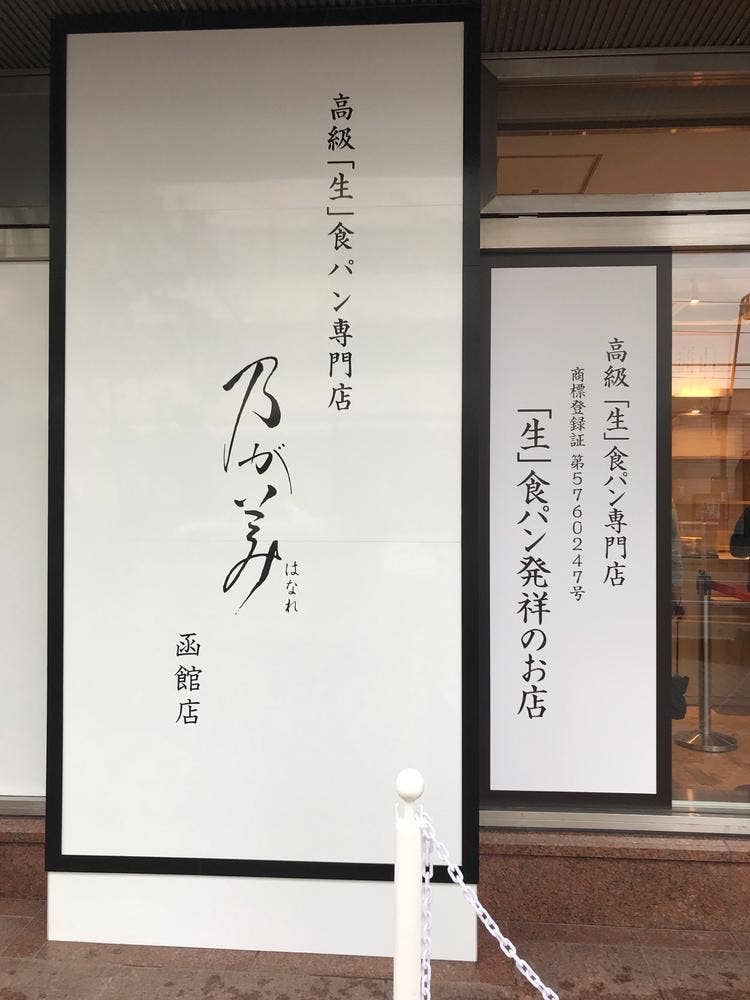 高級「生」食パン専門店
乃が美
はなれ
函館店
高級「生」食パン専門店
商標登録証 第5760247号
「生」食パン発祥のお店